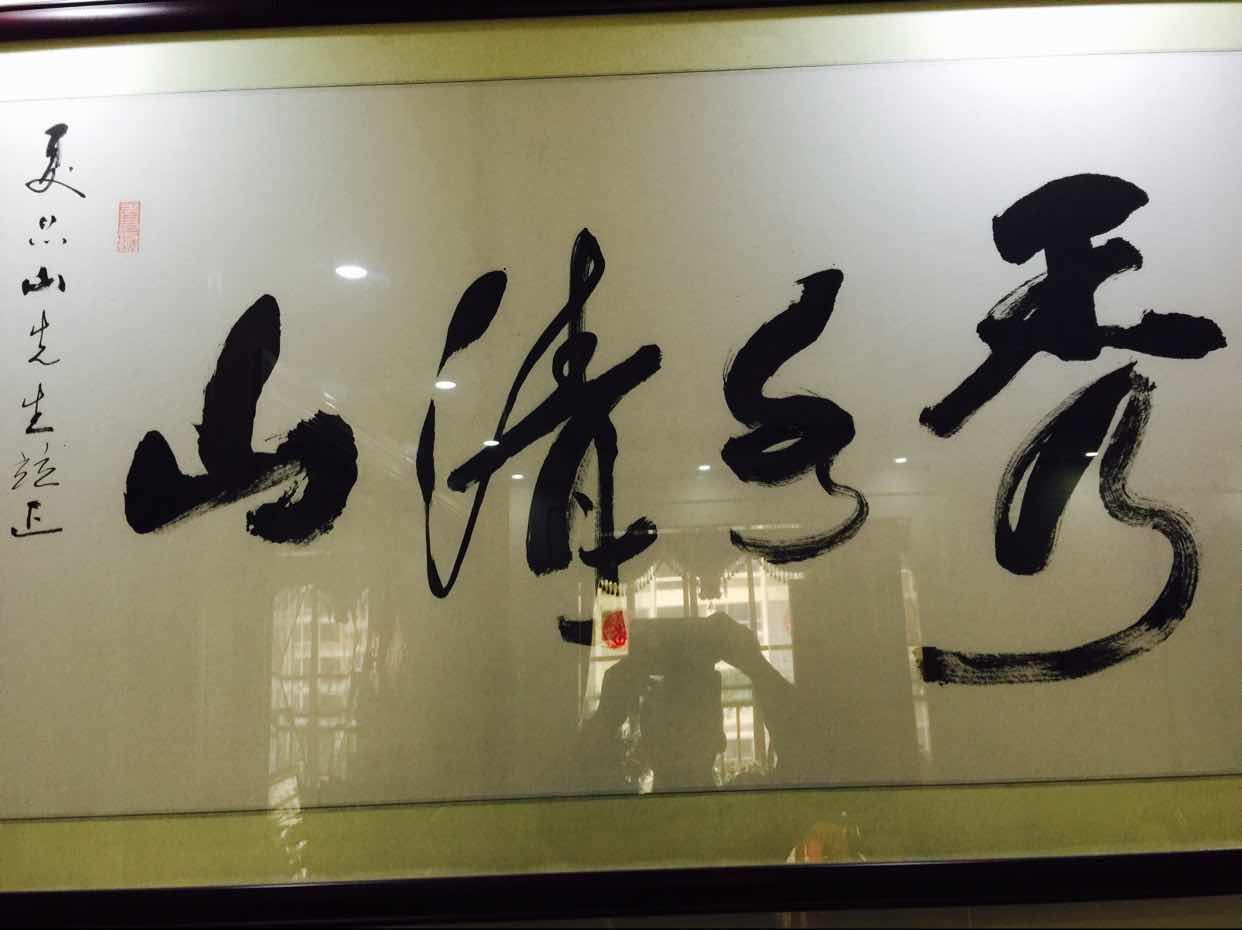 秀水清山
夏品山先生正